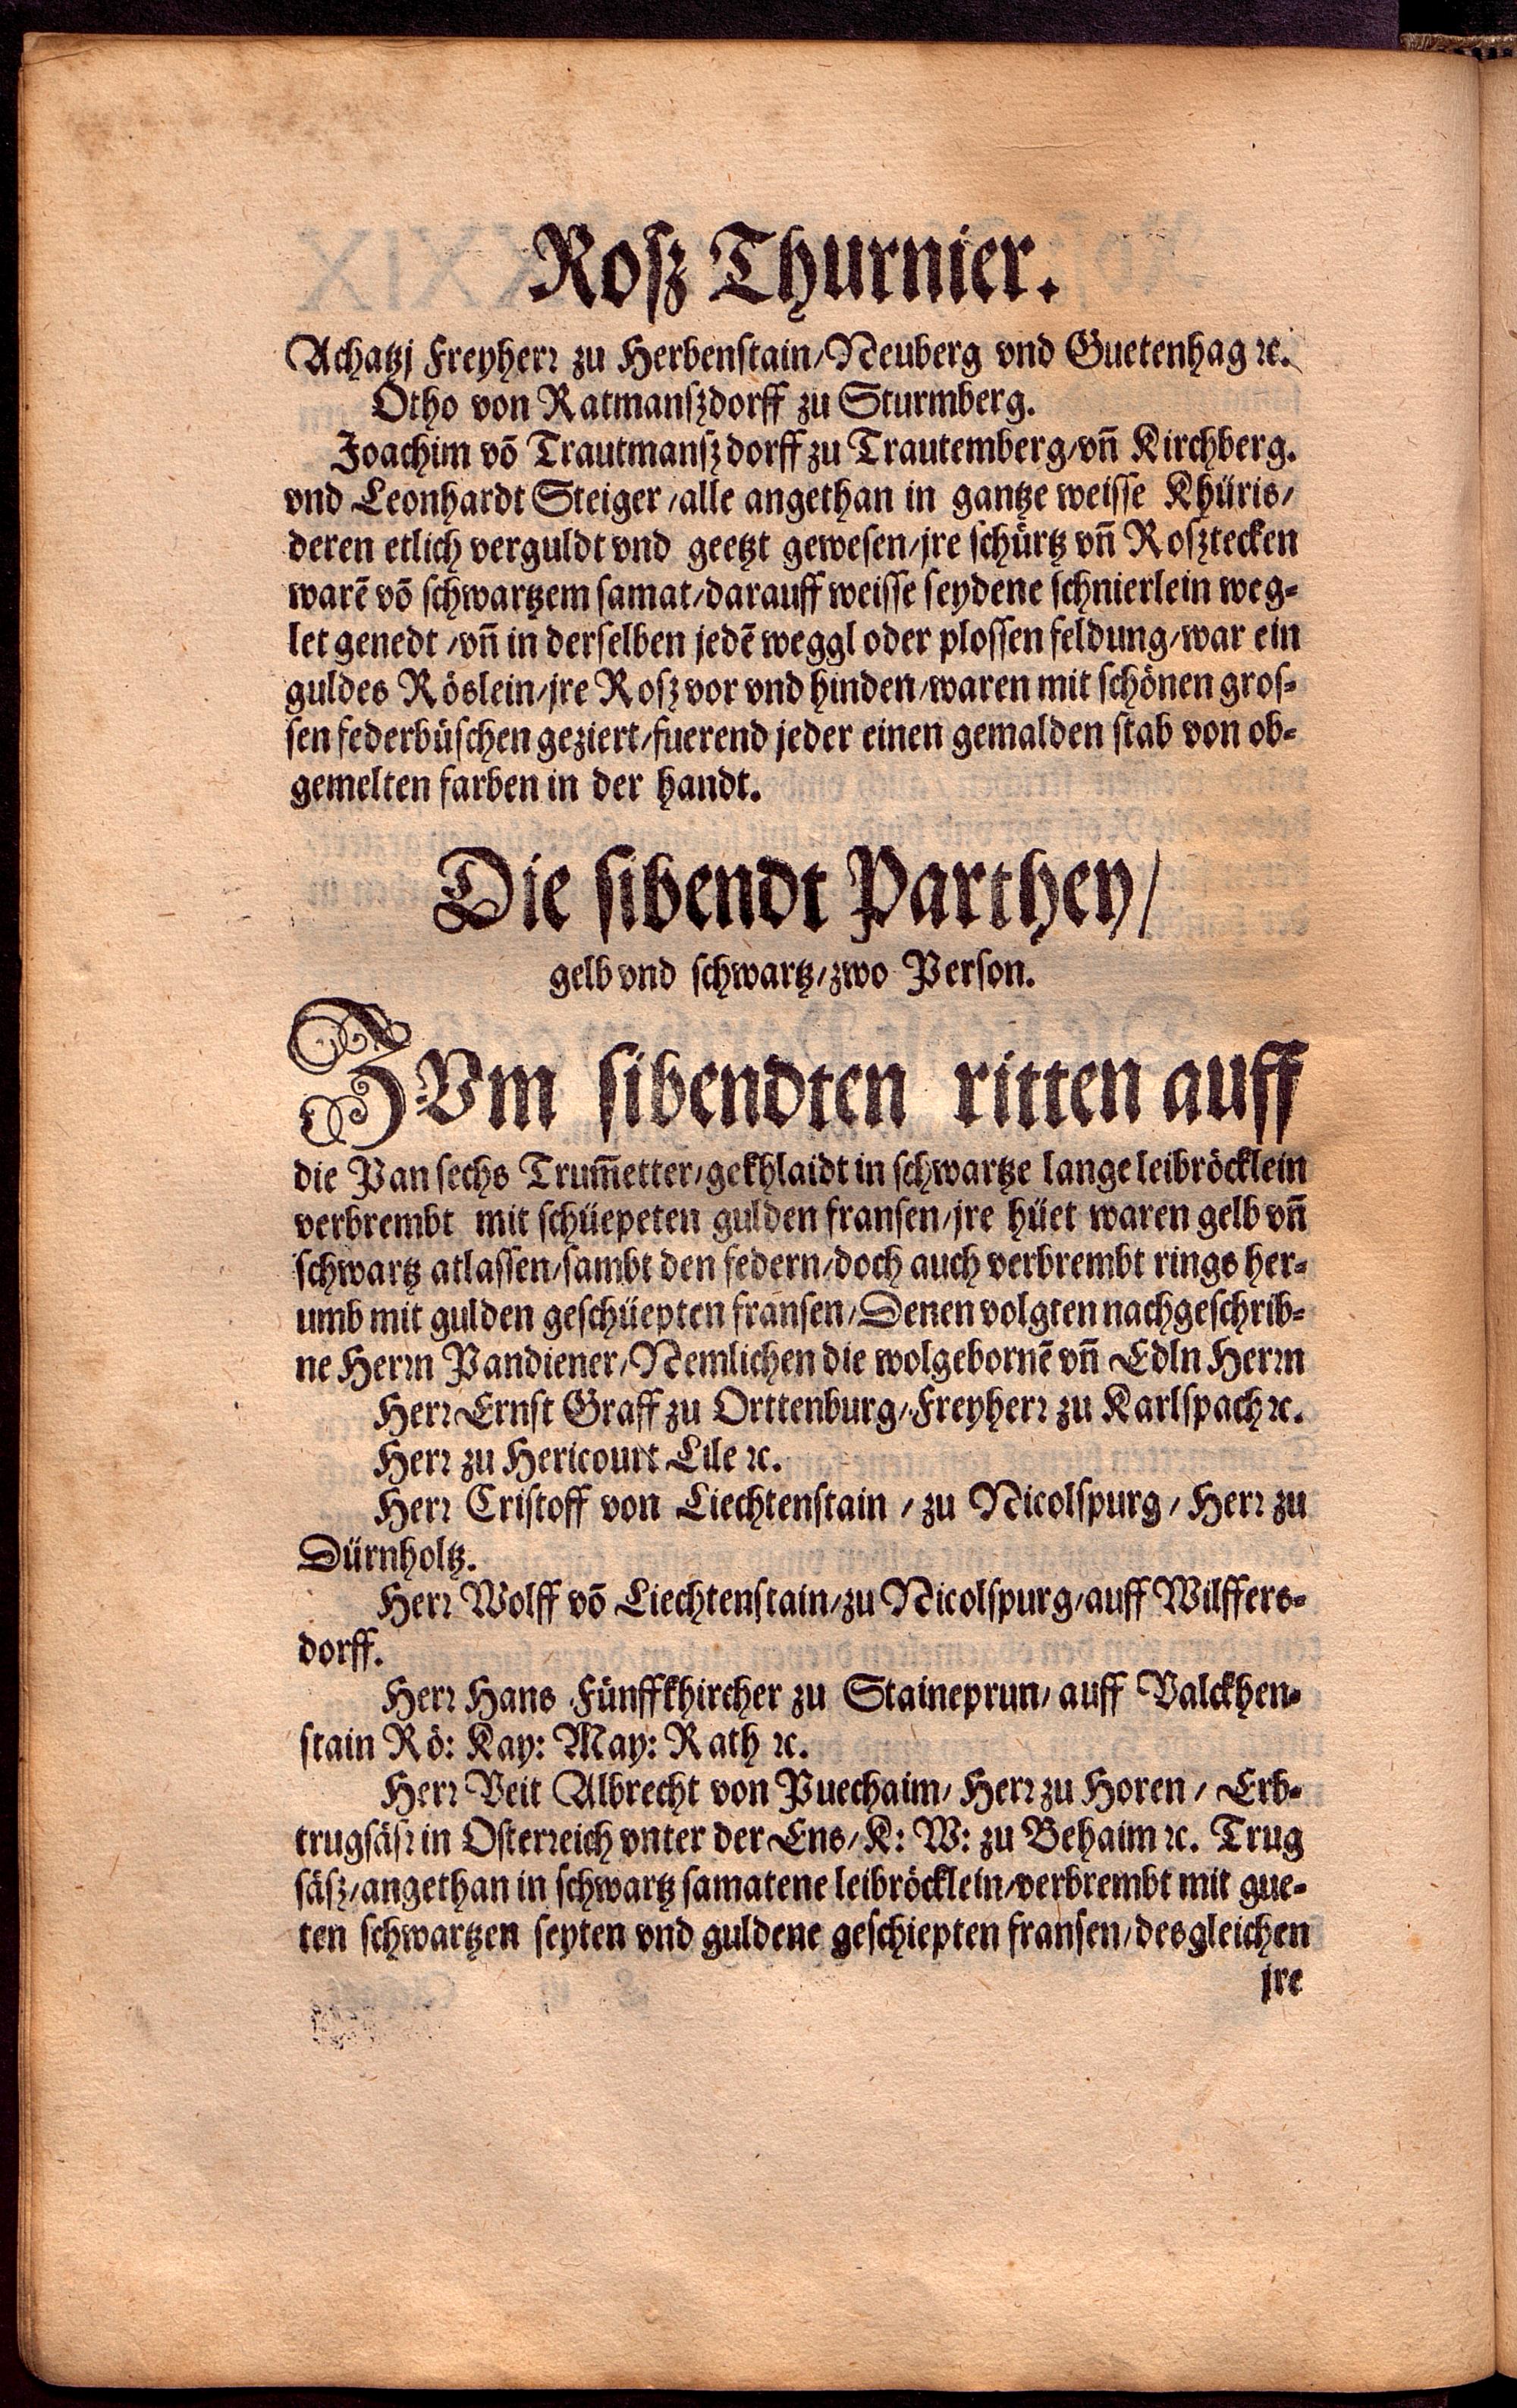 Rosz Thurnier.
Achatzj Freyherr zu Herbenstain/Neuberg vnd Guetenhag ꝛc.
Otho von Ratmanszdorff zu Sturmberg.
Joachim võ Trautmanszdorff zu Trautemberg/vñ Kirchberg.
vnd Leonhardt Steiger/alle angethan in gantze weisse Khüris/
deren etlich verguldt vnd geetzt gewesen/jre schürtz vñ Rosztecken
warẽ võ schwartzem samat/darauff weisse seydene schnierlein weg=
let genedt/vñ in derselben jedẽ weggl oder plossen feldung/war ein
guldes Röslein/jre Rosz vor vnd hinden/waren mit schönen gros=
sen federbüschen geziert/fuerend jeder einen gemalden stab von ob=
gemelten farben in der handt.
Die sibendt Parthey/
gelb vnd schwartz/zwo Person.
ZVm sibendten ritten auff
die Pan sechs Trum̃etter/gekhlaidt in schwartze lange leibröcklein
verbrembt mit schüepeten gulden fransen/jre hüet waren gelb vñ
schwartz atlassen/sambt den federn/doch auch verbrembt rings her=
umb mit gulden geschüepten fransen/Denen volgten nachgeschrib=
ne Herrn Pandiener/Nemlichen die wolgebornẽ vñ Edln Herrn
Herr Ernst Graff zu Orttenburg/Freyherr zu Karlspach ꝛc.
Herr zu Hericourt Lile ꝛc.
Herr Cristoff von Liechtenstain/zu Nicolspurg/Herr zu
Dürnholtz.
Herr Wolff võ Liechtenstain/zu Nicolspurg/auff Wilffers=
dorff.
Herr Hans Fünffkhircher zu Staineprun/auff Valckhen=
stain Rö: Kay: May: Rath ꝛc.
Herr Veit Albrecht von Puechaim/Herr zu Horen/Erb=
trugsäsz in Osterreich vnter der Ens/K: W: zu Behaim ꝛc. Trug
säsz/angethan in schwartz samatene leibröcklein/verbrembt mit gue=
ten schwartzen seyten vnd guldene geschiepten fransen/desgleichen
jre